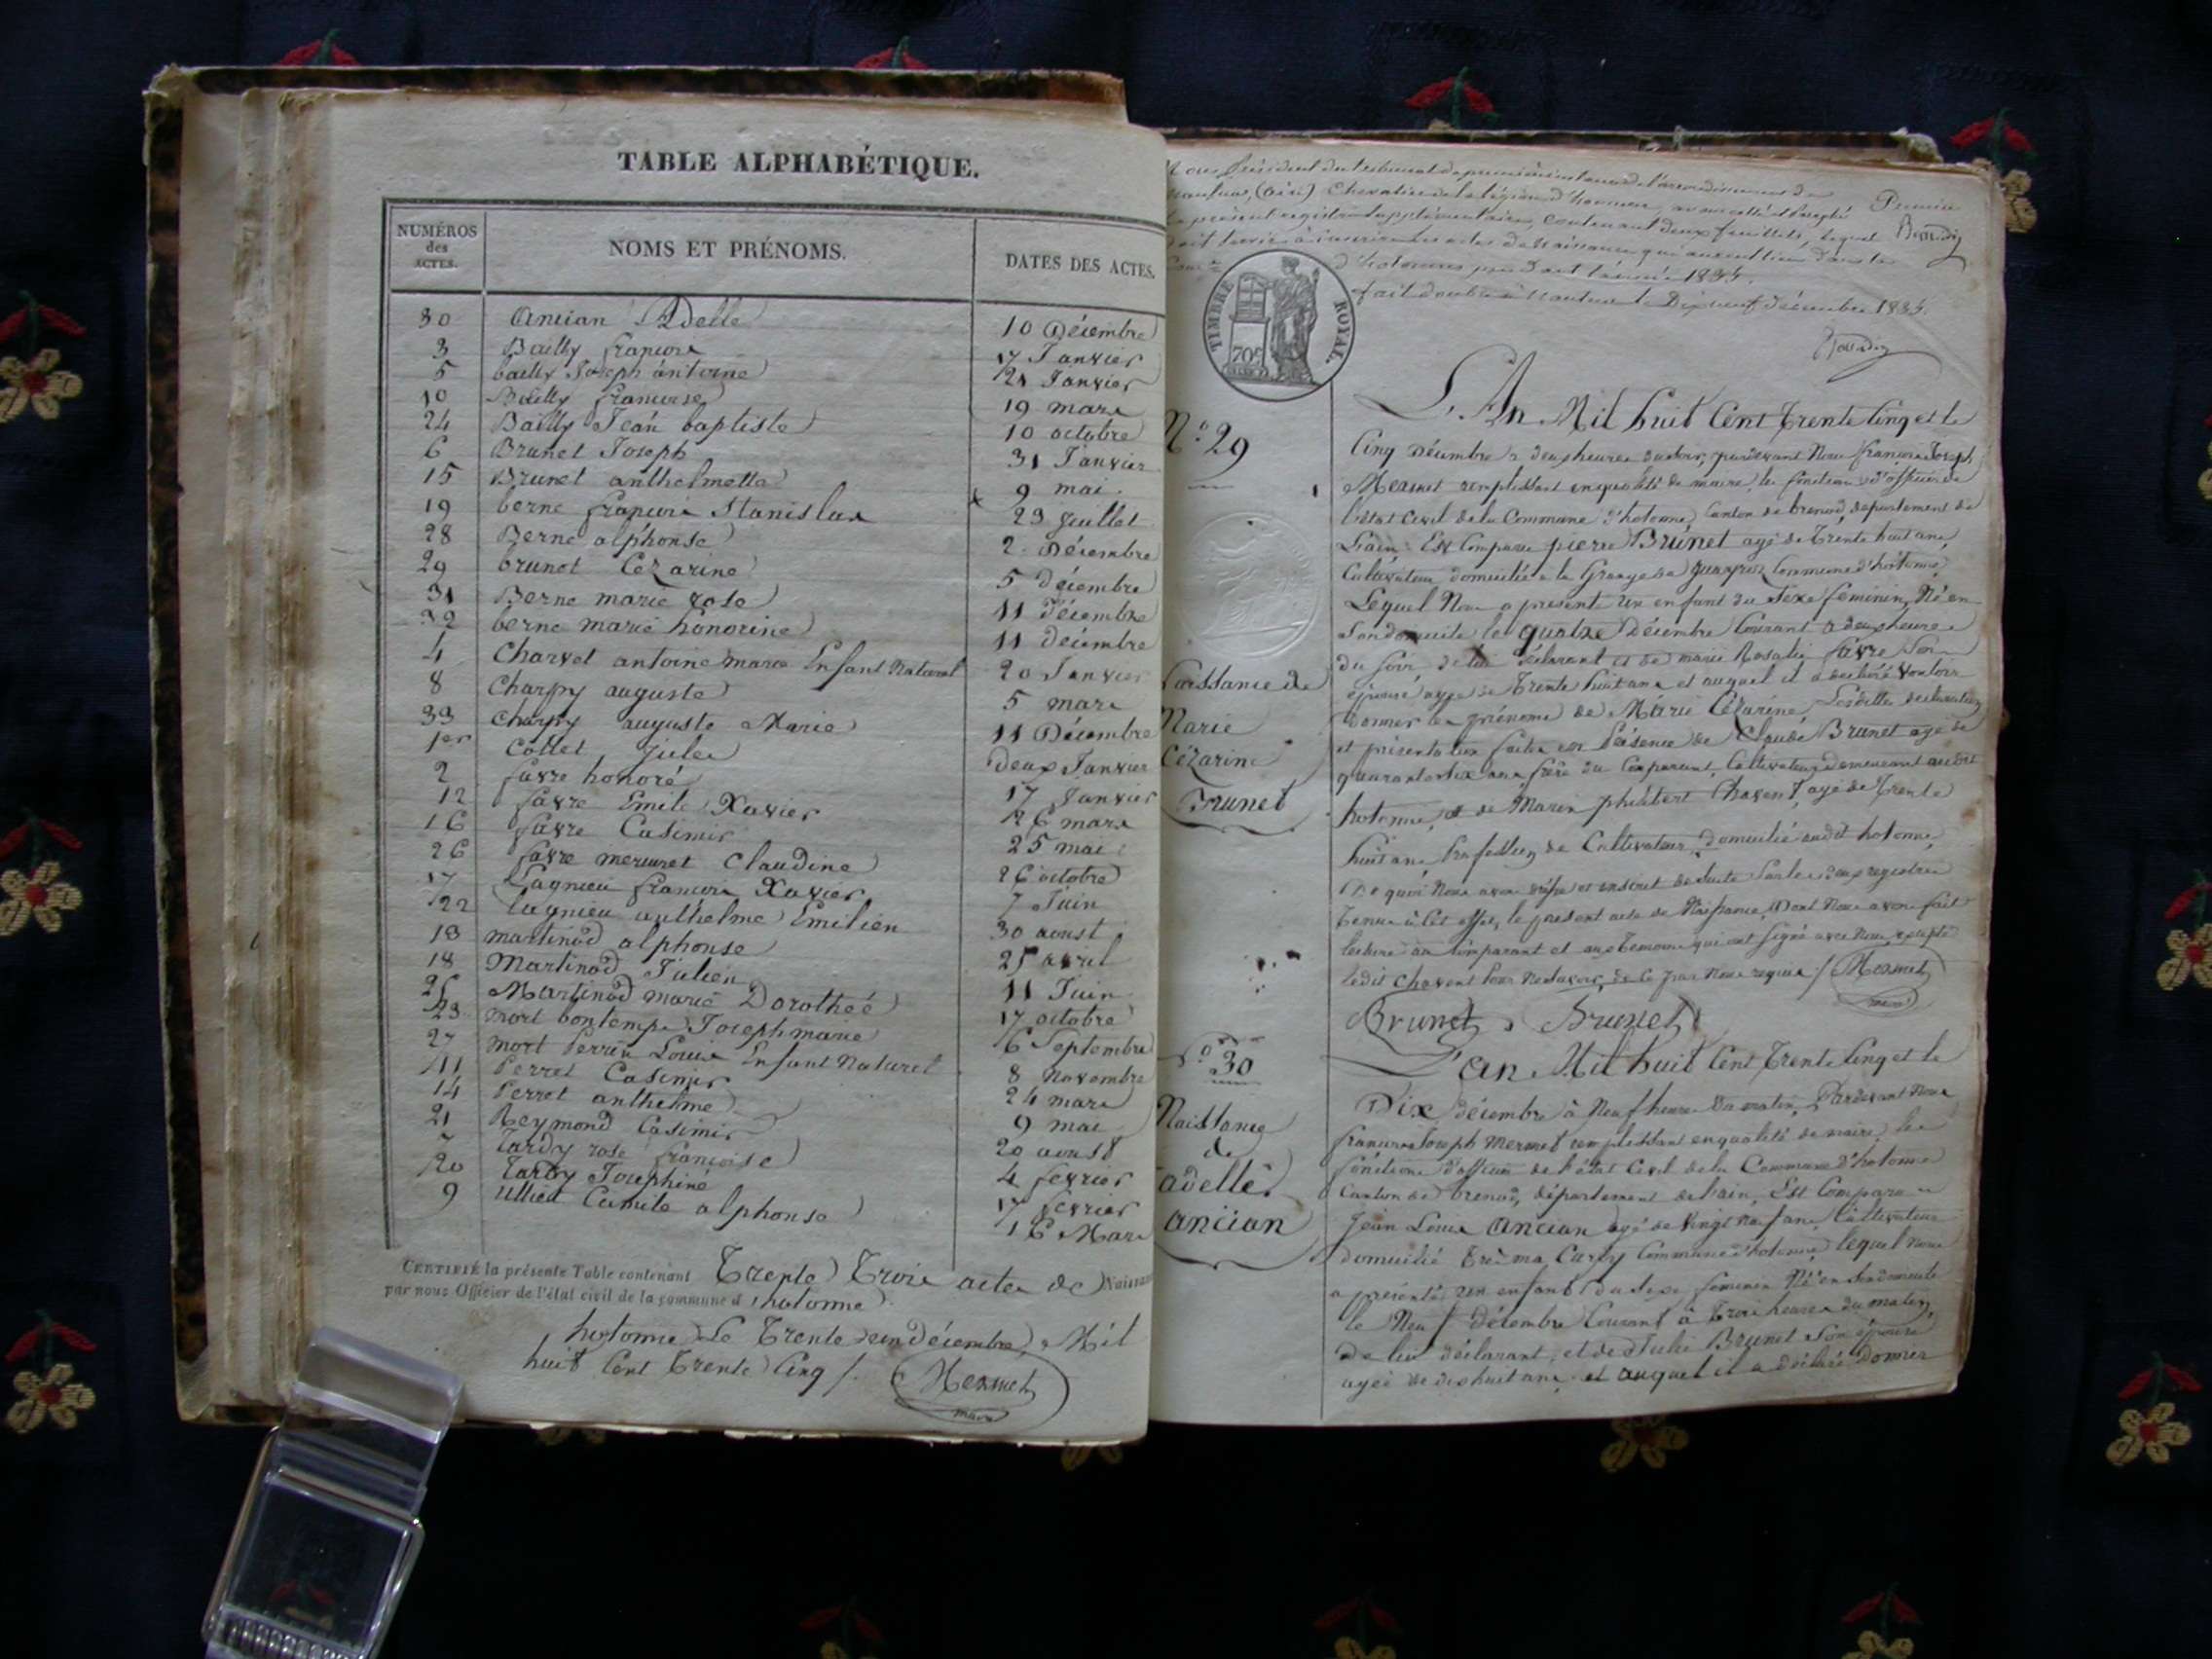 TABLE ALPHABÉTIQUE.
NUMÉROS
des
ACTES.
NOMS ET PRÉNOMS.
DATES DES ACTES.
30 Ancian Adelle 10 Décembre
3 Bailly françois 17 Janvier
5 bailly Joseph antoine 21 Janvier
10 Bailly francoise 19 mars
24 Bailly Jean baptiste 10 octobre
6 Brunet Joseph 31 Janvier
15 Brunet anthelmette 9 mai
19 berne françois Stanislas 29 Juillet
28 Berne alphonse 2 Décembre
29 brunet Cézarine 5 décembre
31 Berne marie rose 11 décembre
32 berne marie honorine 11 décembre
4 Charvet antoine marie Enfant Naturel 20 Janvier
8 Charpy auguste 5 mars
33 Charpy auguste Marie 11 Décembre
1er Collet Jules deux Janvier
2 favre honoré 17 Janvier
12 favre Emile Xavier 26 mars
16 favre Casimir 25 mai
26 favre mermet Claudine 26 octobre
17 Lagnieu françois Xavier 7 Juin
22 lagnieu anthelme Emilien 30 aoust
13 martinod alphonse 25 avril
18 Martinod Julien 11 Juin
25 Martinod marie Dorothée 17 octobre
23 mort bontemps Joseph marie 6 Septembre
27 mort Perrin Louise Enfant Naturel 8 Novembre
11 Perret Casimir 24 mars
14 Perret anthelme 9 mai
21 Reymond Casimir 20 aoust
7 Tardy rose françoise 4 fevrier
20 Tardy Josephine 17 fevrier
9 Ullied Camile alphonse 16 Mars
CERTIFIÉ la présente Table contenant Trente Trois actes de Naissance
par nous Officier de l'état civil de la commune d'hotonne
hotonne Le Trente un décembre Mil
huit Cent Trente Cinq /. Mermet
maire
Nous Président du tribunal de première instance de l'arrondissement de
Nantua, (Ain) Chevalier de la légion d'honneur, avons coté et paraphé
Le présent registre Supplémentaire, contenant deux feuillets, lequel
doit servir à inscrire les actes de Naissance qui auront lieu dans la
Com.ne d'hotonnes pendant l'année 1835.
fait double à Nantua le Dix neuf décembre 1835.
Premier
TIMBRE ROYAL.
70c
N.o 29
Naissance de
Marie
Cézarine
Brunet
L'An Mil huit Cent Trente Cinq et le
Cinq Décembre à deux heures du soir, pardevant Nous françois Joseph
Mermet remplissant en qualité de maire les fonctions d'officier de
l'état Civil de la Commune d'hotonne, Canton de brenod, département de
L'ain, Est Comparu pierre Brunet agé de Trente huit ans,
Cultivateur domicilié a la Grange de Commune d'hotonne,
Lequel Nous a presenté un enfant du Sexe feminin, Né en
son domicile le quatre Décembre Courant a deux heures
du soir de lui déclarant et de marie Rosalie favre Son
épouse agée de Trente huit ans et auquel il a declaré vouloir
donner les prénoms de Marie Cézarine, Lesdittes declaration
et présentation faites en présence de Claude Brunet agé de
quarante six ans frère du Comparant, Cultivateur demeurant audit
hotonne, et de Marin philibert Chavent, agé de Trente
huit ans, Profession de Cultivateur, Domicilié audit hotonne,
De quoi Nous avons et inscrit de Suite sur les deux registres
Tenus à Cet effet, le present acte de Naissance, Dont Nous avons fait
lecture au Comparant et aux Temoins qui ont Signé avec Nous excepté
ledit Chavent pour Ne Savoir, de Ce par Nous requis / Mermet
maire
Brunet Brunet
N.o 30
Naissance
de
adelle
ancian
L'an Mil huit Cent Trente Cinq et le
Dix décembre à Neuf heures du matin, Pardevant Nous
françois Joseph Mermet remplissant en qualité de maire les
fonctions d'officier de l'état Civil de la Commune d'hotonne
Canton de brenod, département de l'ain, Est Comparu
Jean Louis Ancian agé de Vingt Neuf ans Cultivateur
domicilié Commune d'hotonne, lequel Nous
a présenté un enfant du Sexe feminin Né en son domicile
le Neuf décembre Courant à Trois heures du matin,
De lui déclarant, et de Julie Brunet Son épouse
agée de dix huit ans et auquel il a déclaré donner